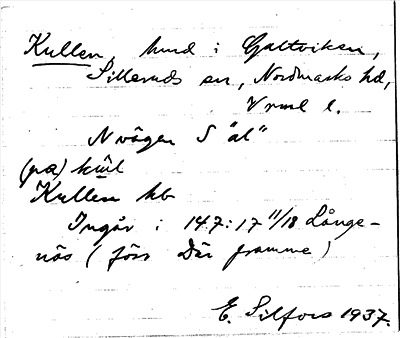 Kullen, hmd i Galtviken,
Silleruds sn, Nordmarks hd,
Vrml l.
N vägen S "al"
(pa) kul
Kullen hb
Ingår i 147:17 11/18 Långe-
näs (förr Där framme)
E. Silfors 1937.